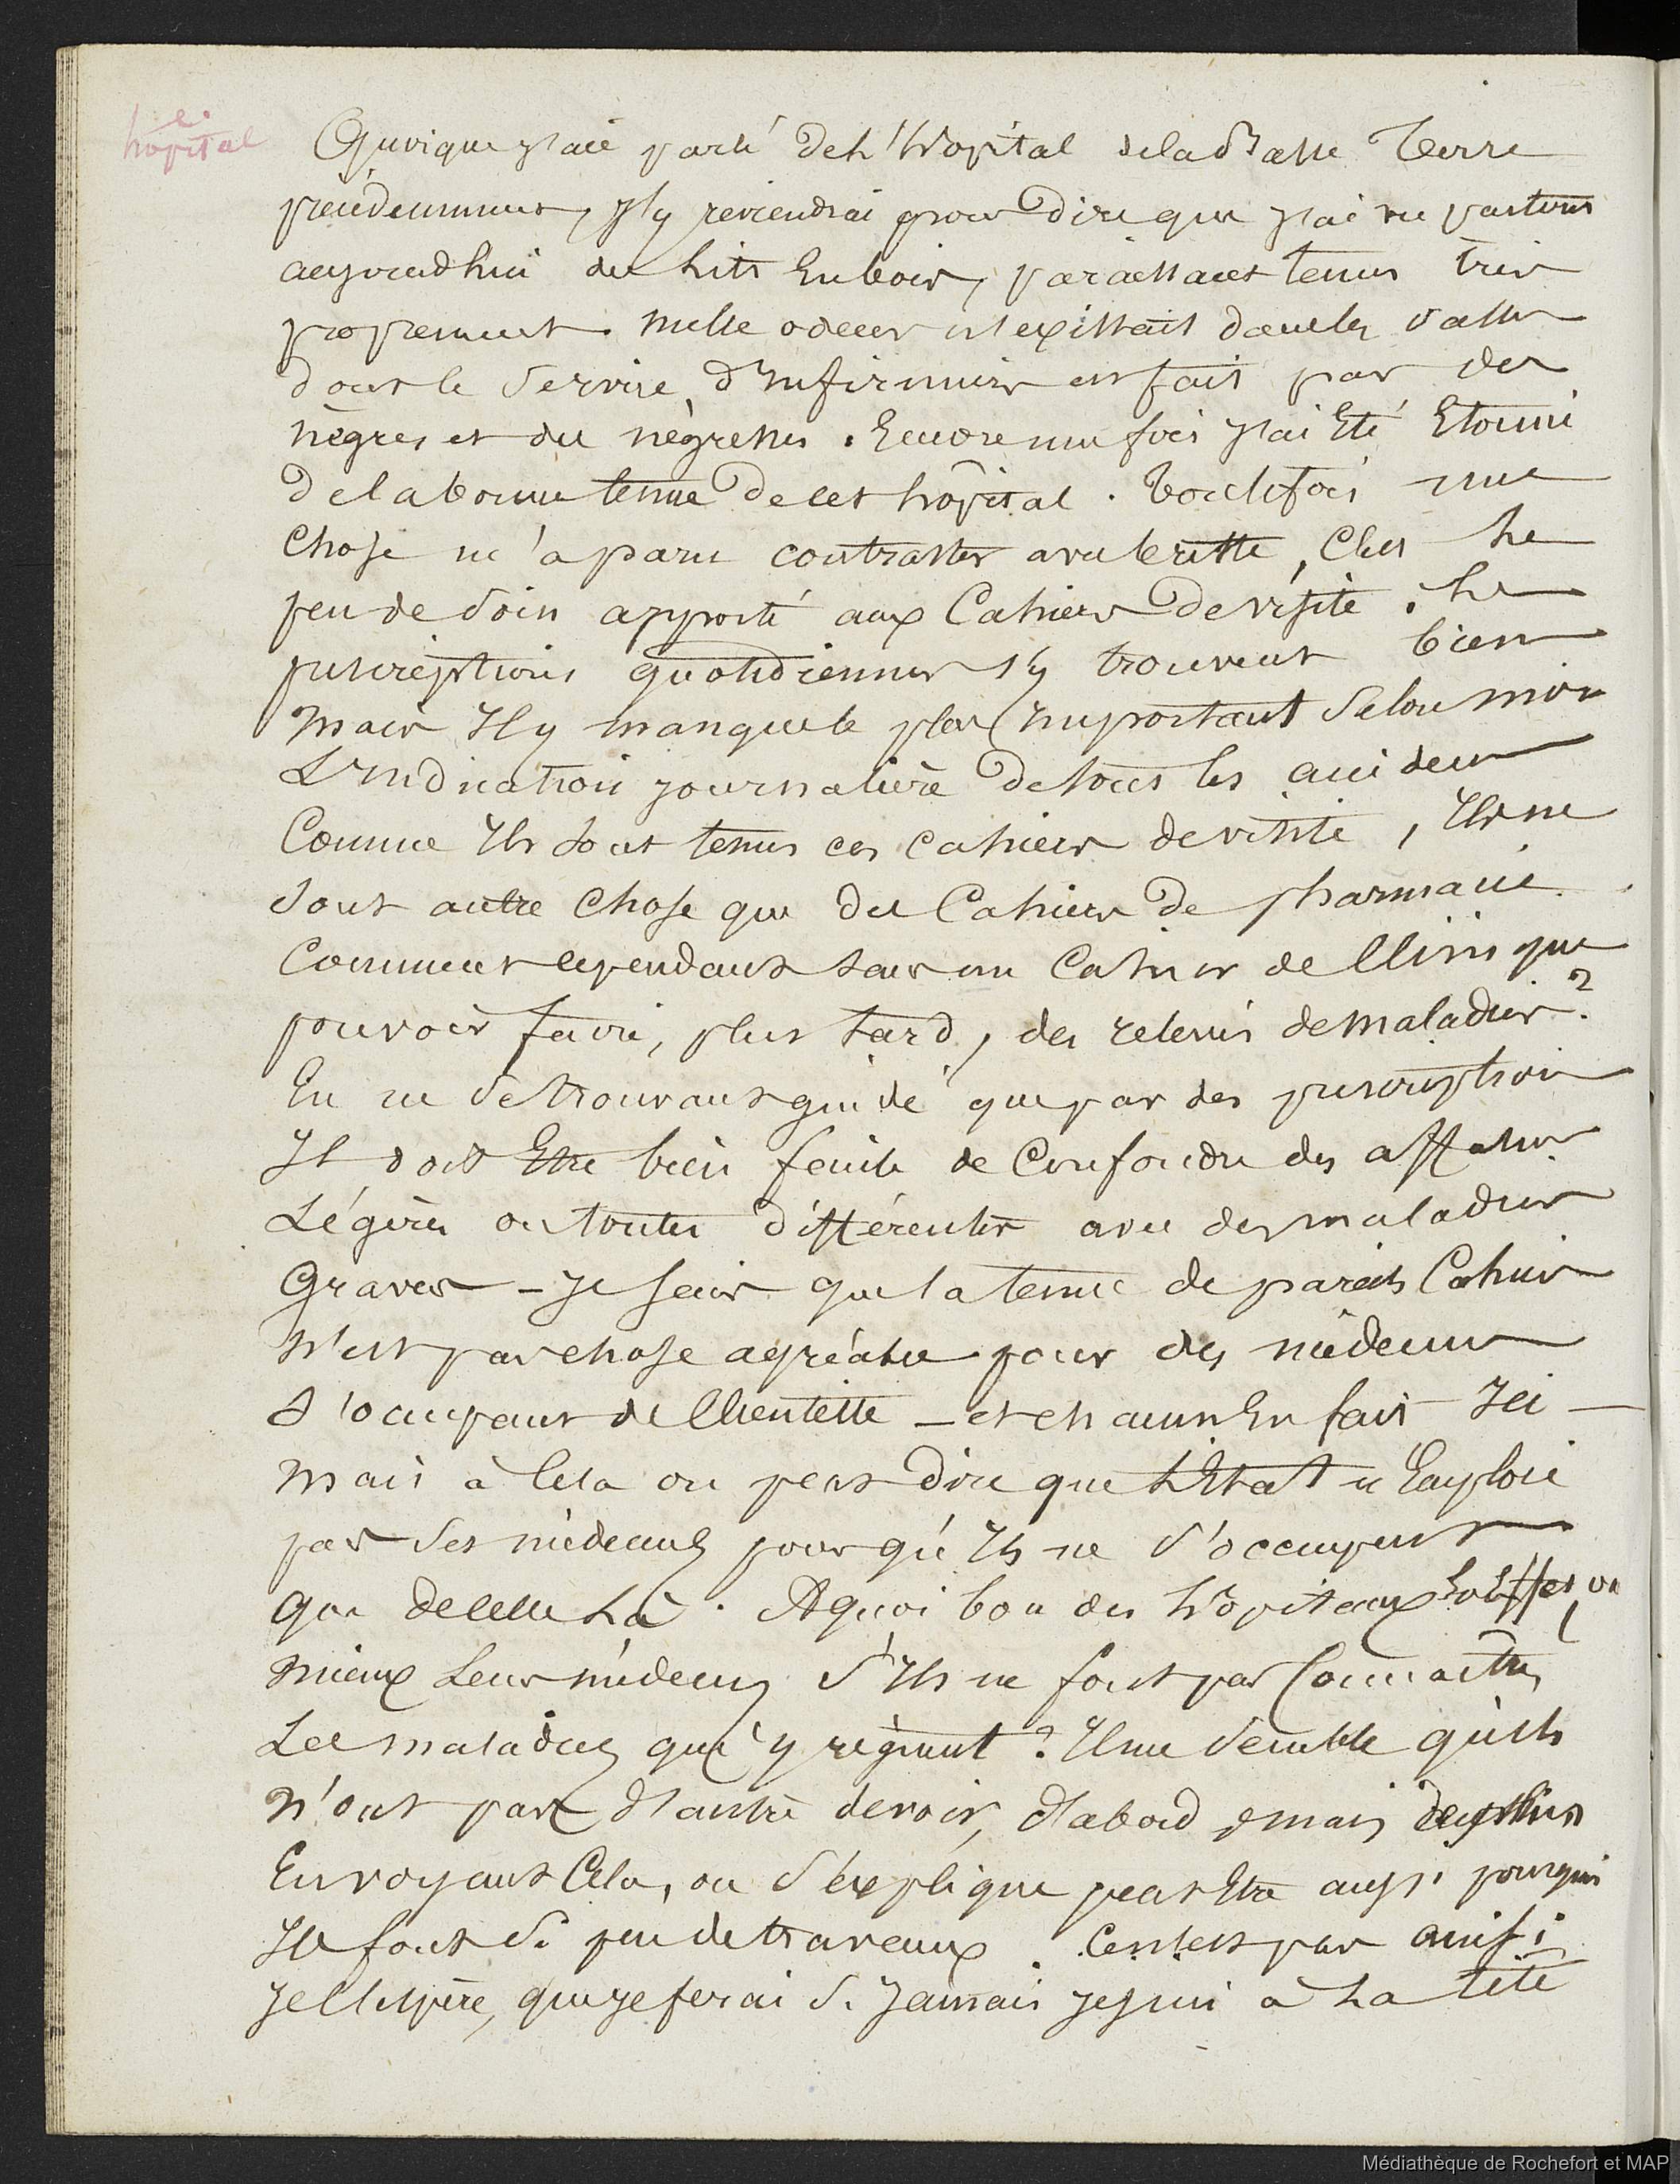 hôpital
Quoique j'aie parlé de l'hopital de la Basse Terre
précédemment, j'y reviendrai pour dire que j'ai vu partout
aujourdhui des lits En bois, paraissant tenus très
proprement. Nulle odeur n'existait dans les salles
dont le service d'Infirmiers est fait par des
nègres et des nègresses. Encore une fois j'ai Eté Etonné
de la bonne tenue de cet hôpital. Toutefois une
chose m'a paru contraster avec le reste, C'est Le
peu de soin apporté aux Cahiers de visite. Les
prescriptions quotidiennes s'y trouvent bien
mais Il y manque le plus Important selon moi
L'Indication journalière de tous les accidents
Comme Ils sont tenus ces cahiers de visite, Ils ne
sont autre chose que des Cahiers de pharmacie.
Comment cependant sans un Cahier de Clinique
pouvoir faire, plus tard, des relevés de maladies?
En ne se trouvant guidé que par des prescriptions
Il doit Etre bien facile de Confondre des affections
Légères ou toutes différentes avec des maladies
Graves - Je sais que la tenue de pareils Cahiers
N'est pas chose agréable pour des médecins
s'occupant de Clientelle - et chacun En fait Ici -
Mais à Cela on peut dire que L'Etat n'Emploie
pas ses médecins pour qu'Ils ne s'occupent
que de celle Là. A quoi bon des hopitaux En Effet, ou
mieux Leurs médecins s'Ils ne font pas Connaître
Les maladies qui y règnent? Il me semble qu'ils
N'ont pas d'autre devoir, d'abord, mais
En voyant Cela, on s'explique peut Etre aussi pourquoi
Ils font si peu de travaux. Ce n'est pas ainsi
Je l'Espère, que je ferai si Jamais je suis à La tête
Médiathèque de Rochefort et MAP